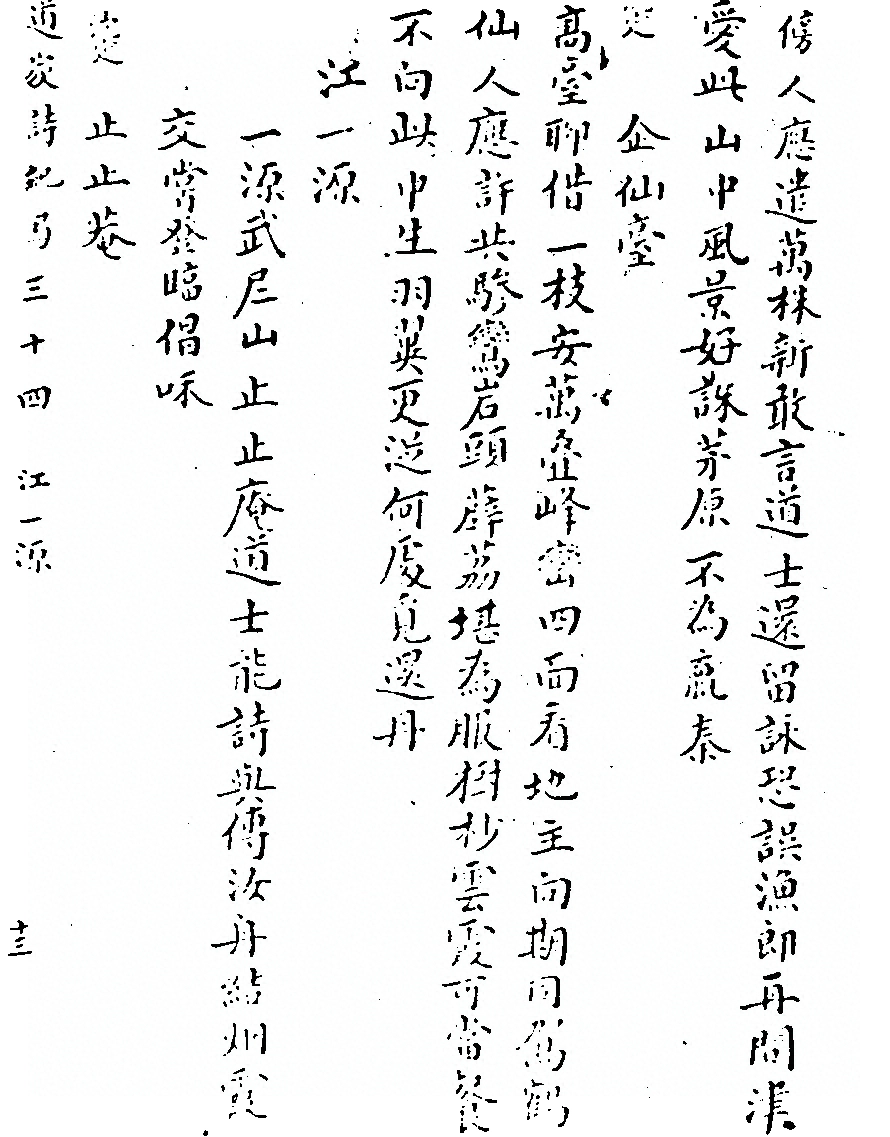 傍人應遣萬株新敢言道士還留詠恐誤漁郎再問津
愛此山中風景好誅茅原不為嬴秦
企仙臺
高臺聊借一枝安萬叠峰巒四面看地主向期同駕鶴
仙人應許共驂鸞岩頭薜荔堪為服樹杪雲霞可當餐
不向此中生羽翼更從何處覓還丹
江一源
一源武夷山止止庵道士能詩與傅汝舟結烟霞
交常登臨倡和
止止菴
道家詩紀 三十四 江一源
十三